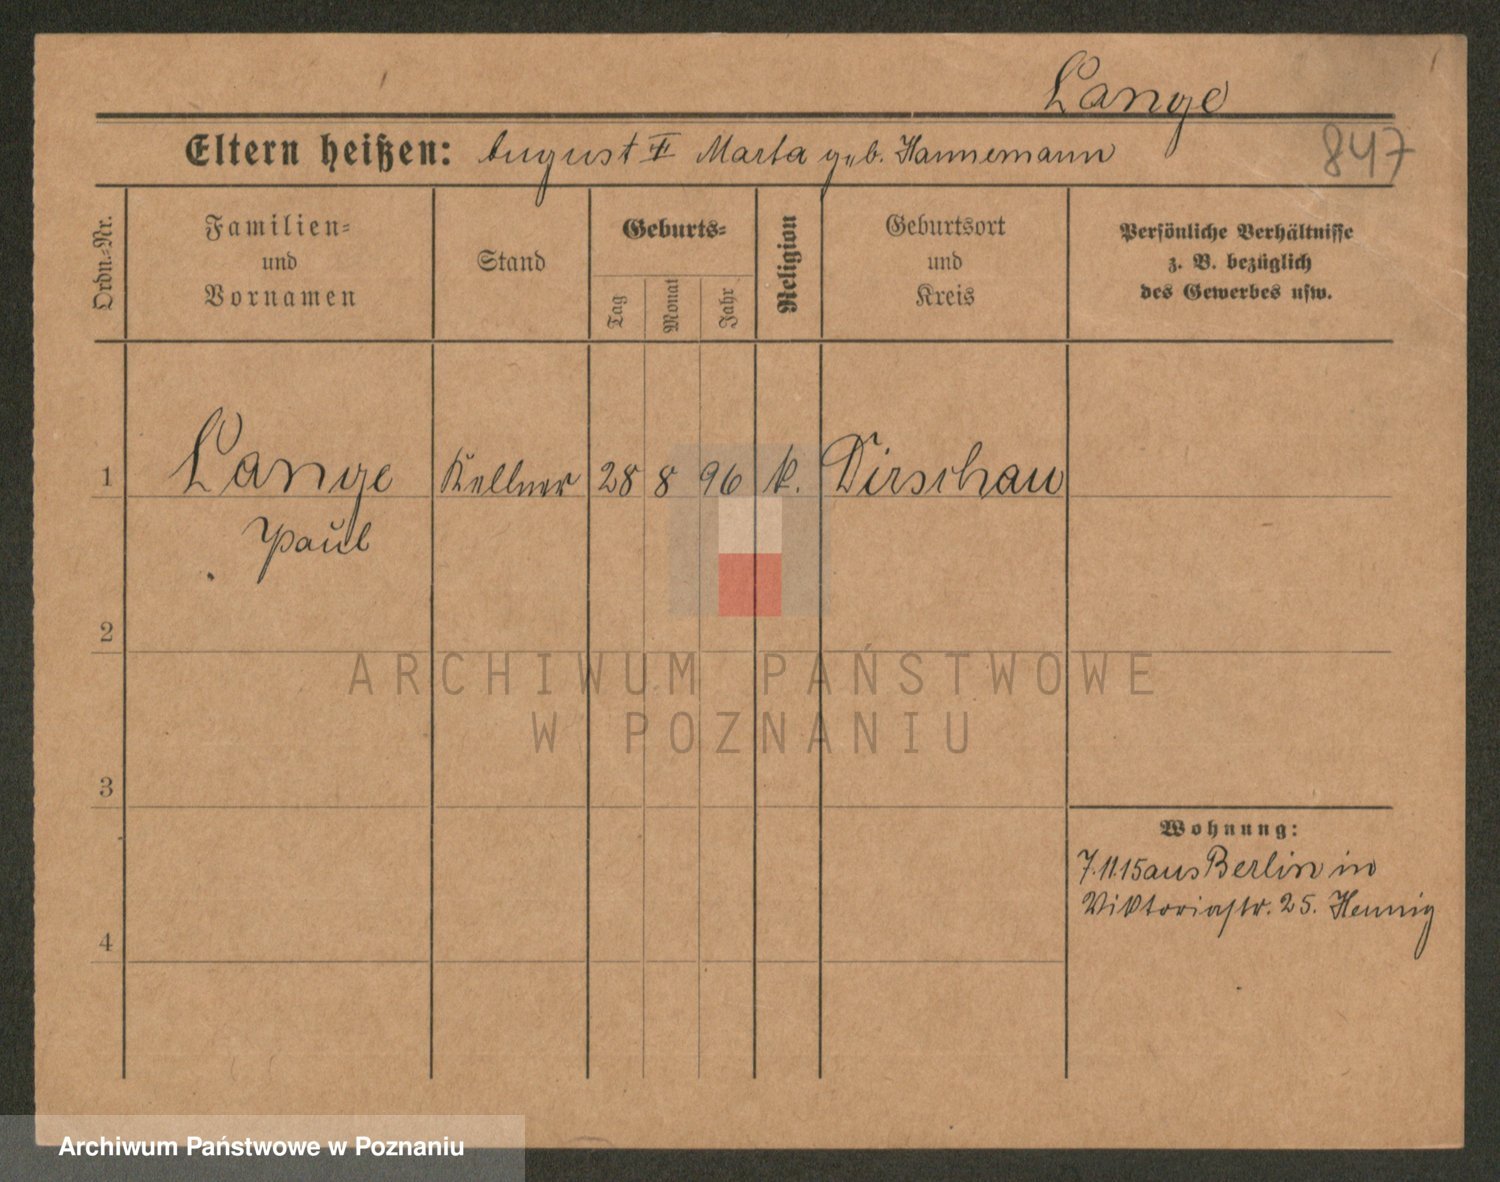 Lange
Eltern heißen: August u Marta geb. Hannemann
847
Ordn.=Nr.
Familien=
und
Vornamen
Stand
Geburts=
Tag
Monat
Jahr
Religion
Geburtsort
und
Kreis
Persönliche Verhältnisse
z. B. bezüglich
des Gewerbes usw.
1 Lange Kellner 28 8 96 k. Dirschau
Paul
2
ARCHIWUM PAŃSTWOWE
W POZNANIU
3
Wohnung:
7.11.15 aus Berlin in
Viktoriastr. 25. Hennig
4
Archiwum Państwowe w Poznaniu